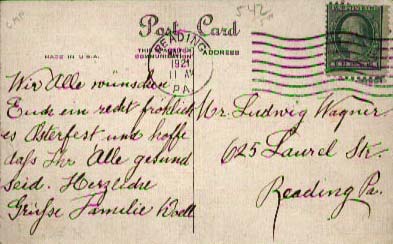 Post Card
MADE IN U.S.A.
THIS
COMMUNICATION
ADDRESS
READING
1921
11 AM
PA.
Wir Alle wünschen
Euch ein recht fröhlich
es Osterfest, und hoffe
daß Ihr Alle gesund
seid. Herzliche
Grüsse Familie
Mr. Ludwig Wagner
625 Laurel Str.
Reading Pa.